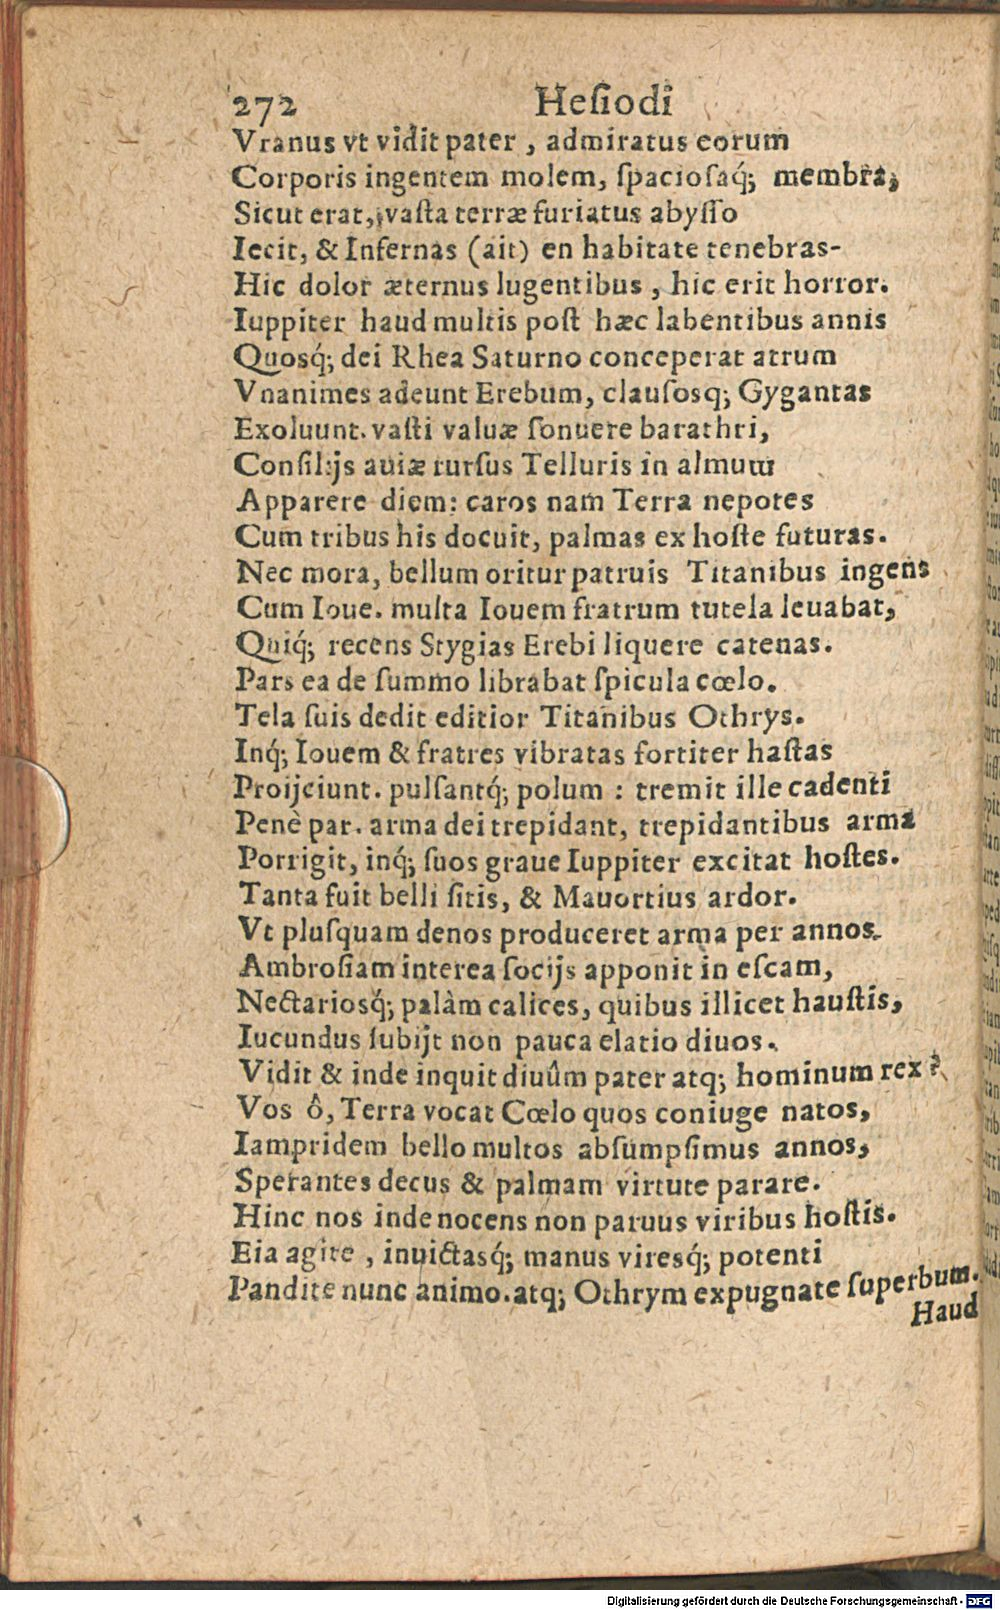 272 Heſiodi
Vranus vt vidit pater, admiratus eorum
Corporis ingentem molem, ſpacioſaq́; membra,
Sicut erat, vaſta terræ furiatus abyſſo
Iecit, & Infernas (ait) en habitate tenebras-
Hic dolor æternus lugentibus, hic erit horror.
Iuppiter haud multis poſt hæc labentibus annis
Quosq́; dei Rhea Saturno conceperat atrum
Vnanimes adeunt Erebum, clauſosq; Gygantas
Exoluunt. vaſti valuæ ſonuere barathri,
Conſilijs auiæ rurſus Telluris in almum
Apparere diem: caros nam Terra nepotes
Cum tribus his docuit, palmas ex hoſte futuras.
Nec mora, bellum oritur patruis Titanibus ingens
Cum Ioue. multa Iouem fratrum tutela leuabat,
Quiq́; recens Stygias Erebi liquere catenas.
Pars ea de ſummo librabat ſpicula cœlo.
Tela ſuis dedit editior Titanibus Othrys.
Inq́; Iouem & fratres vibratas fortiter haſtas
Proijciunt. pulſantq́; polum : tremit ille cadenti
Penè par. arma dei trepidant, trepidantibus arma
Porrigit, inq́; ſuos graue Iuppiter excitat hoſtes.
Tanta fuit belli ſitis, & Mauortius ardor.
Vt pluſquam denos produceret arma per annos.
Ambroſiam interea ſocijs apponit in eſcam,
Nectarioſq́; palàm calices, quibus illicet hauſtis,
Iucundus ſubijt non pauca elatio diuos.
Vidit & inde inquit diuûm pater atq; hominum rex?
Vos ô, Terra vocat Cœlo quos coniuge natos,
Iampridem bello multos abſumpſimus annos,
Sperantes decus & palmam virtute parare.
Hinc nos inde nocens non paruus viribus hoſtis.
Eia agite, inuictasq́; manus viresq́; potenti
Pandite nunc animo. atq; Othrym expugnate ſuperbum.
Haud
Digitalisierung gefördert durch die Deutsche Forschungsgemeinschaft - DFG